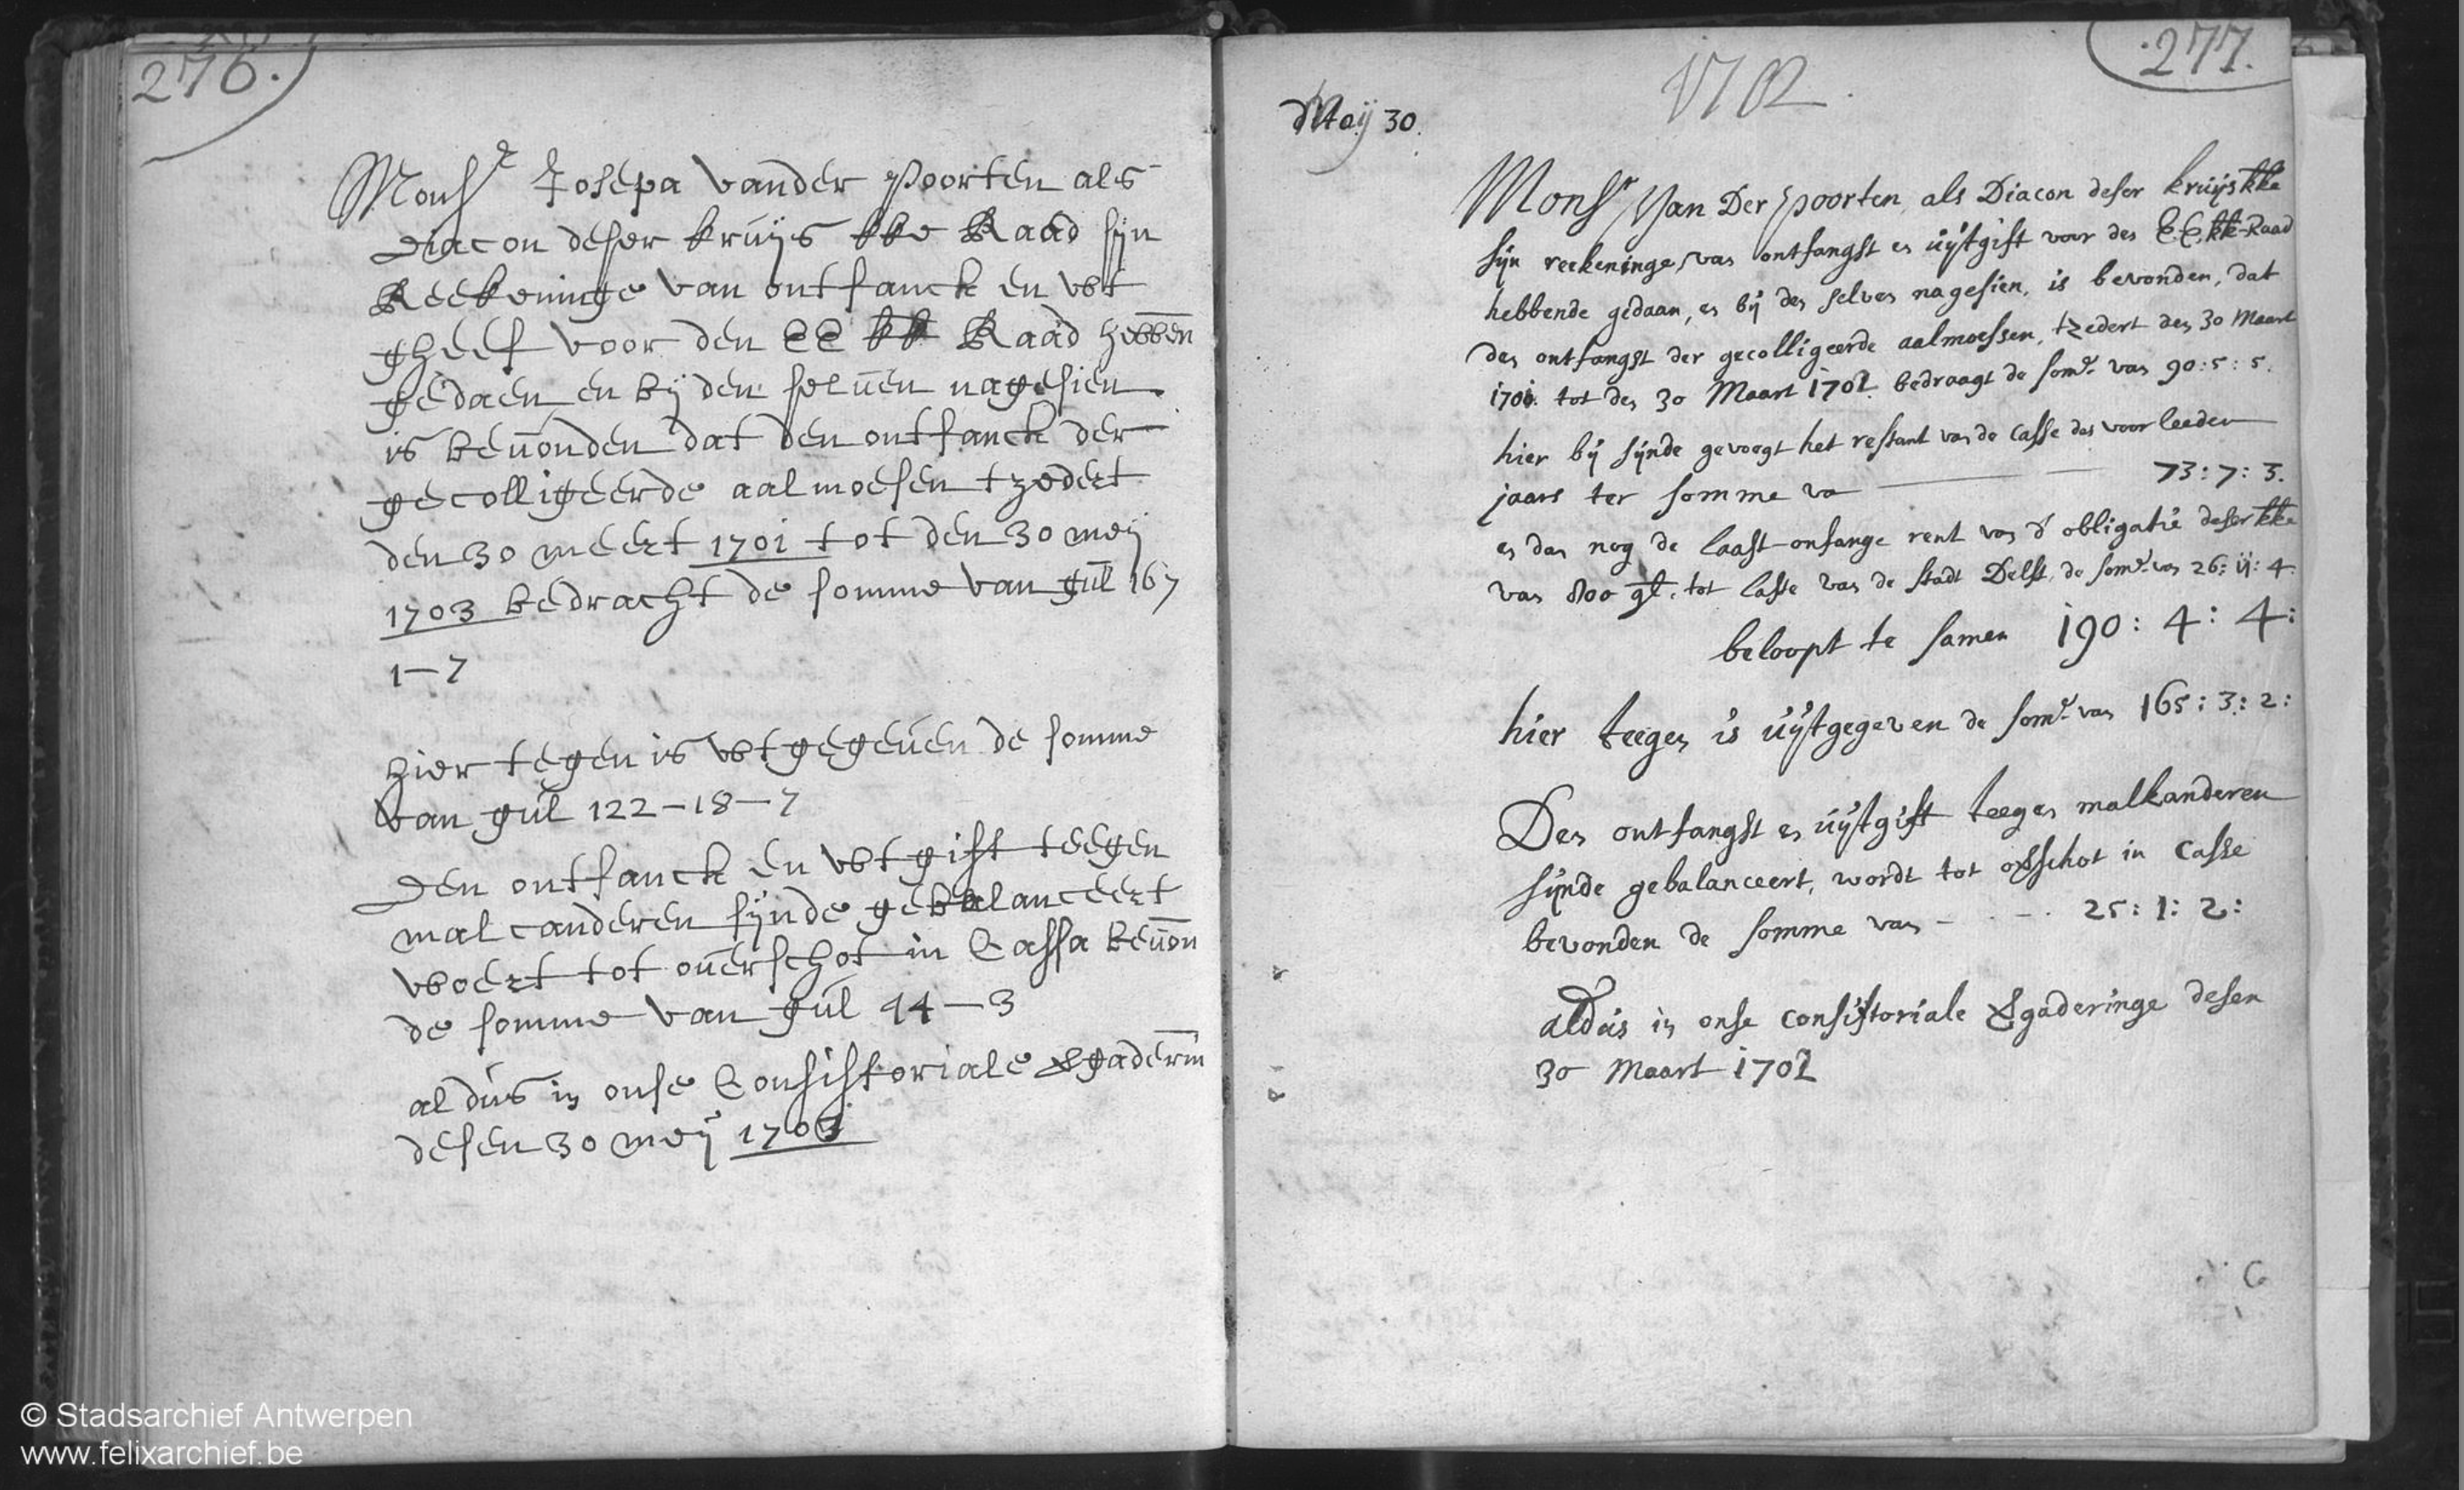 276.
Monsr Josepa vander Poorten als
Diacon deser kruijs kke Raad sijn
Reekeninge van ontfanck en wt
gheef voor den EE kk Raad hebben
gedaen en bij den selven nagesien
is bevonden dat den ontfanck der
gecolligeerde aalmoesen tzedert
den 30 meert 1701 tot den 30 meij
1703 bedracht de somme van gul 167
1-7
hier tegen is wtgegeven de somme
van gul 122-18-7
Den ontfanck en wtgift teegen
malcanderen sijnde gebalanceert
woert tot overschot in Cassa bevon
de somme van gul 44-3
aldus in onse Consistoriale vgaderin
desen 30 meij 1703
277.
1702
Maij 30.
Monsr Van Der Poorten, als Diacon deser kruijs kke
sijn reekeninge van ontfangst en uijtgift voor den E.E. kk-Raad
hebbende gedaan, en bij den selven nagesien, is bevonden, dat
den ontfangst der gecolligeerde aalmoessen, tzedert den 30 Maart
1701. tot den 30 Maart 1702. bedraagt de some van 90:5:5.
hier bij sijnde gevoegt het restant van de Casse des voorleeden
jaars ter somme va 73:7:3.
en dan nog de laast-onfange rent van d' obligatie deser kke
van 800 gl. tot laste van de stadt Delft, de some van 26:11:4
beloopt te samen 190:4:4:
hier teegen is uijtgegeven de some van 165:3:2:
Den ontfangst en uijtgift teegen malkanderen
sijnde gebalanceert, wordt tot ovschot in Casse
bevonden de somme van - - - 25:1:2:
aldus in onse consistoriale vgaderinge desen
30 Maart 1702
© Stadsarchief Antwerpen
www.felixarchief.be